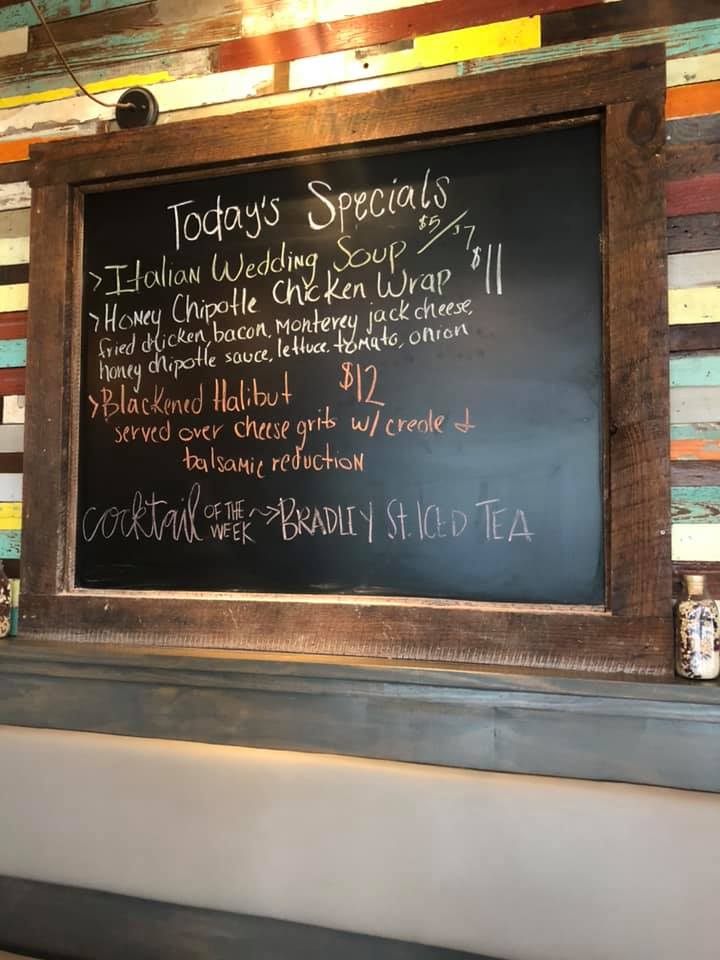 Today's Specials
>Italian Wedding Soup $5/$7
>Honey Chipotle Chicken Wrap $11
fried chicken, bacon, Monterey jack cheese,
honey chipotle sauce, lettuce, tomato, onion
>Blackened Halibut $12
served over cheese grits w/ creole &
balsamic reduction
cocktail OF THE WEEK ~> BRADLEY St. ICED TEA